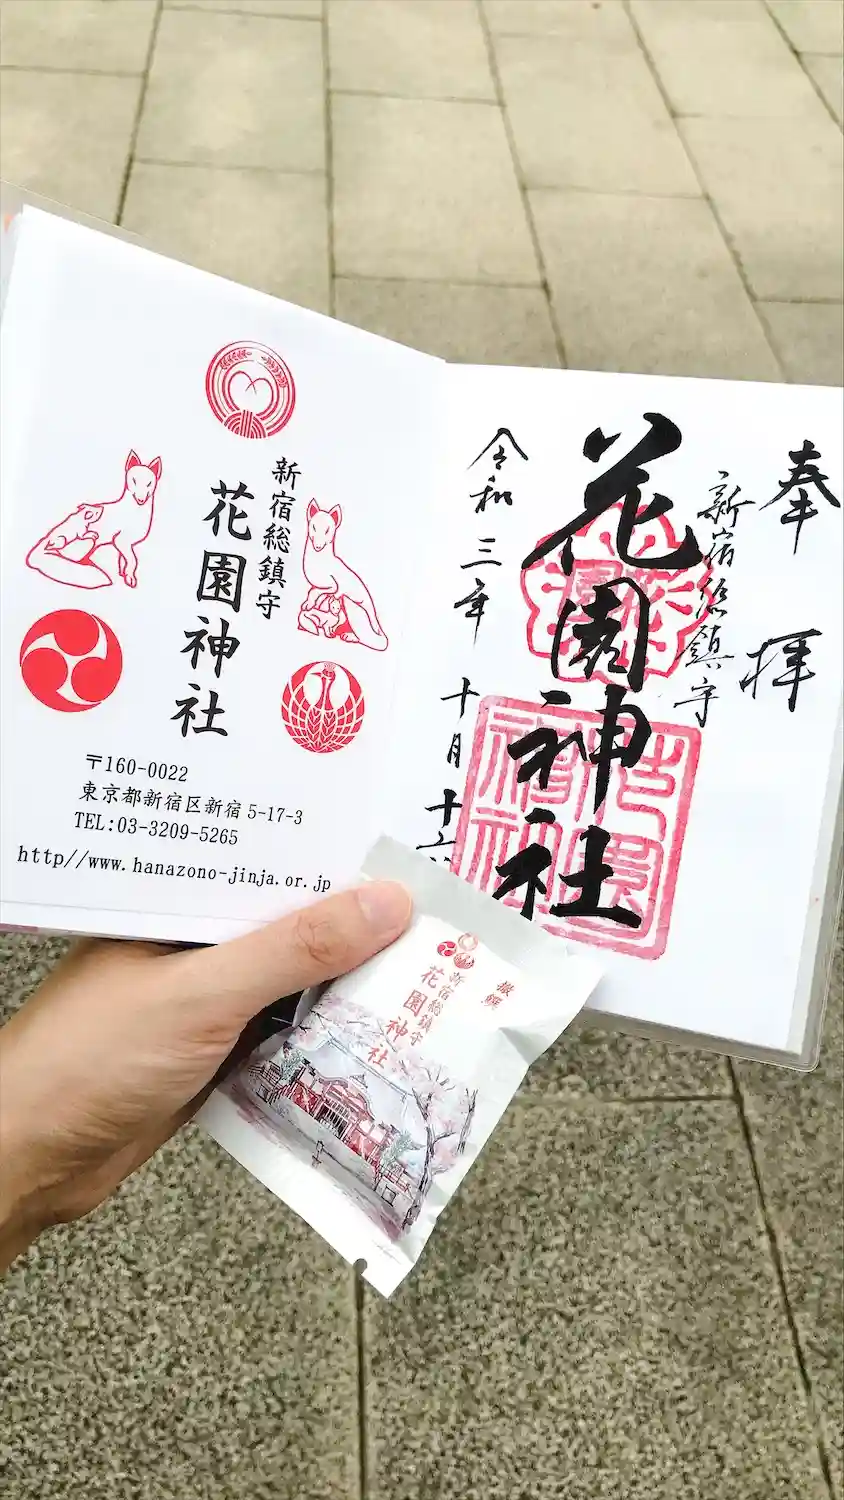 奉拝
新宿総鎮守
花園神社
令和三年十月十
新宿総鎮守
花園神社
〒160-0022
東京都新宿区新宿5-17-3
TEL:03-3209-5265
http//www.hanazono-jinja.or.jp
撤饌
新宿総鎮守
花園神社